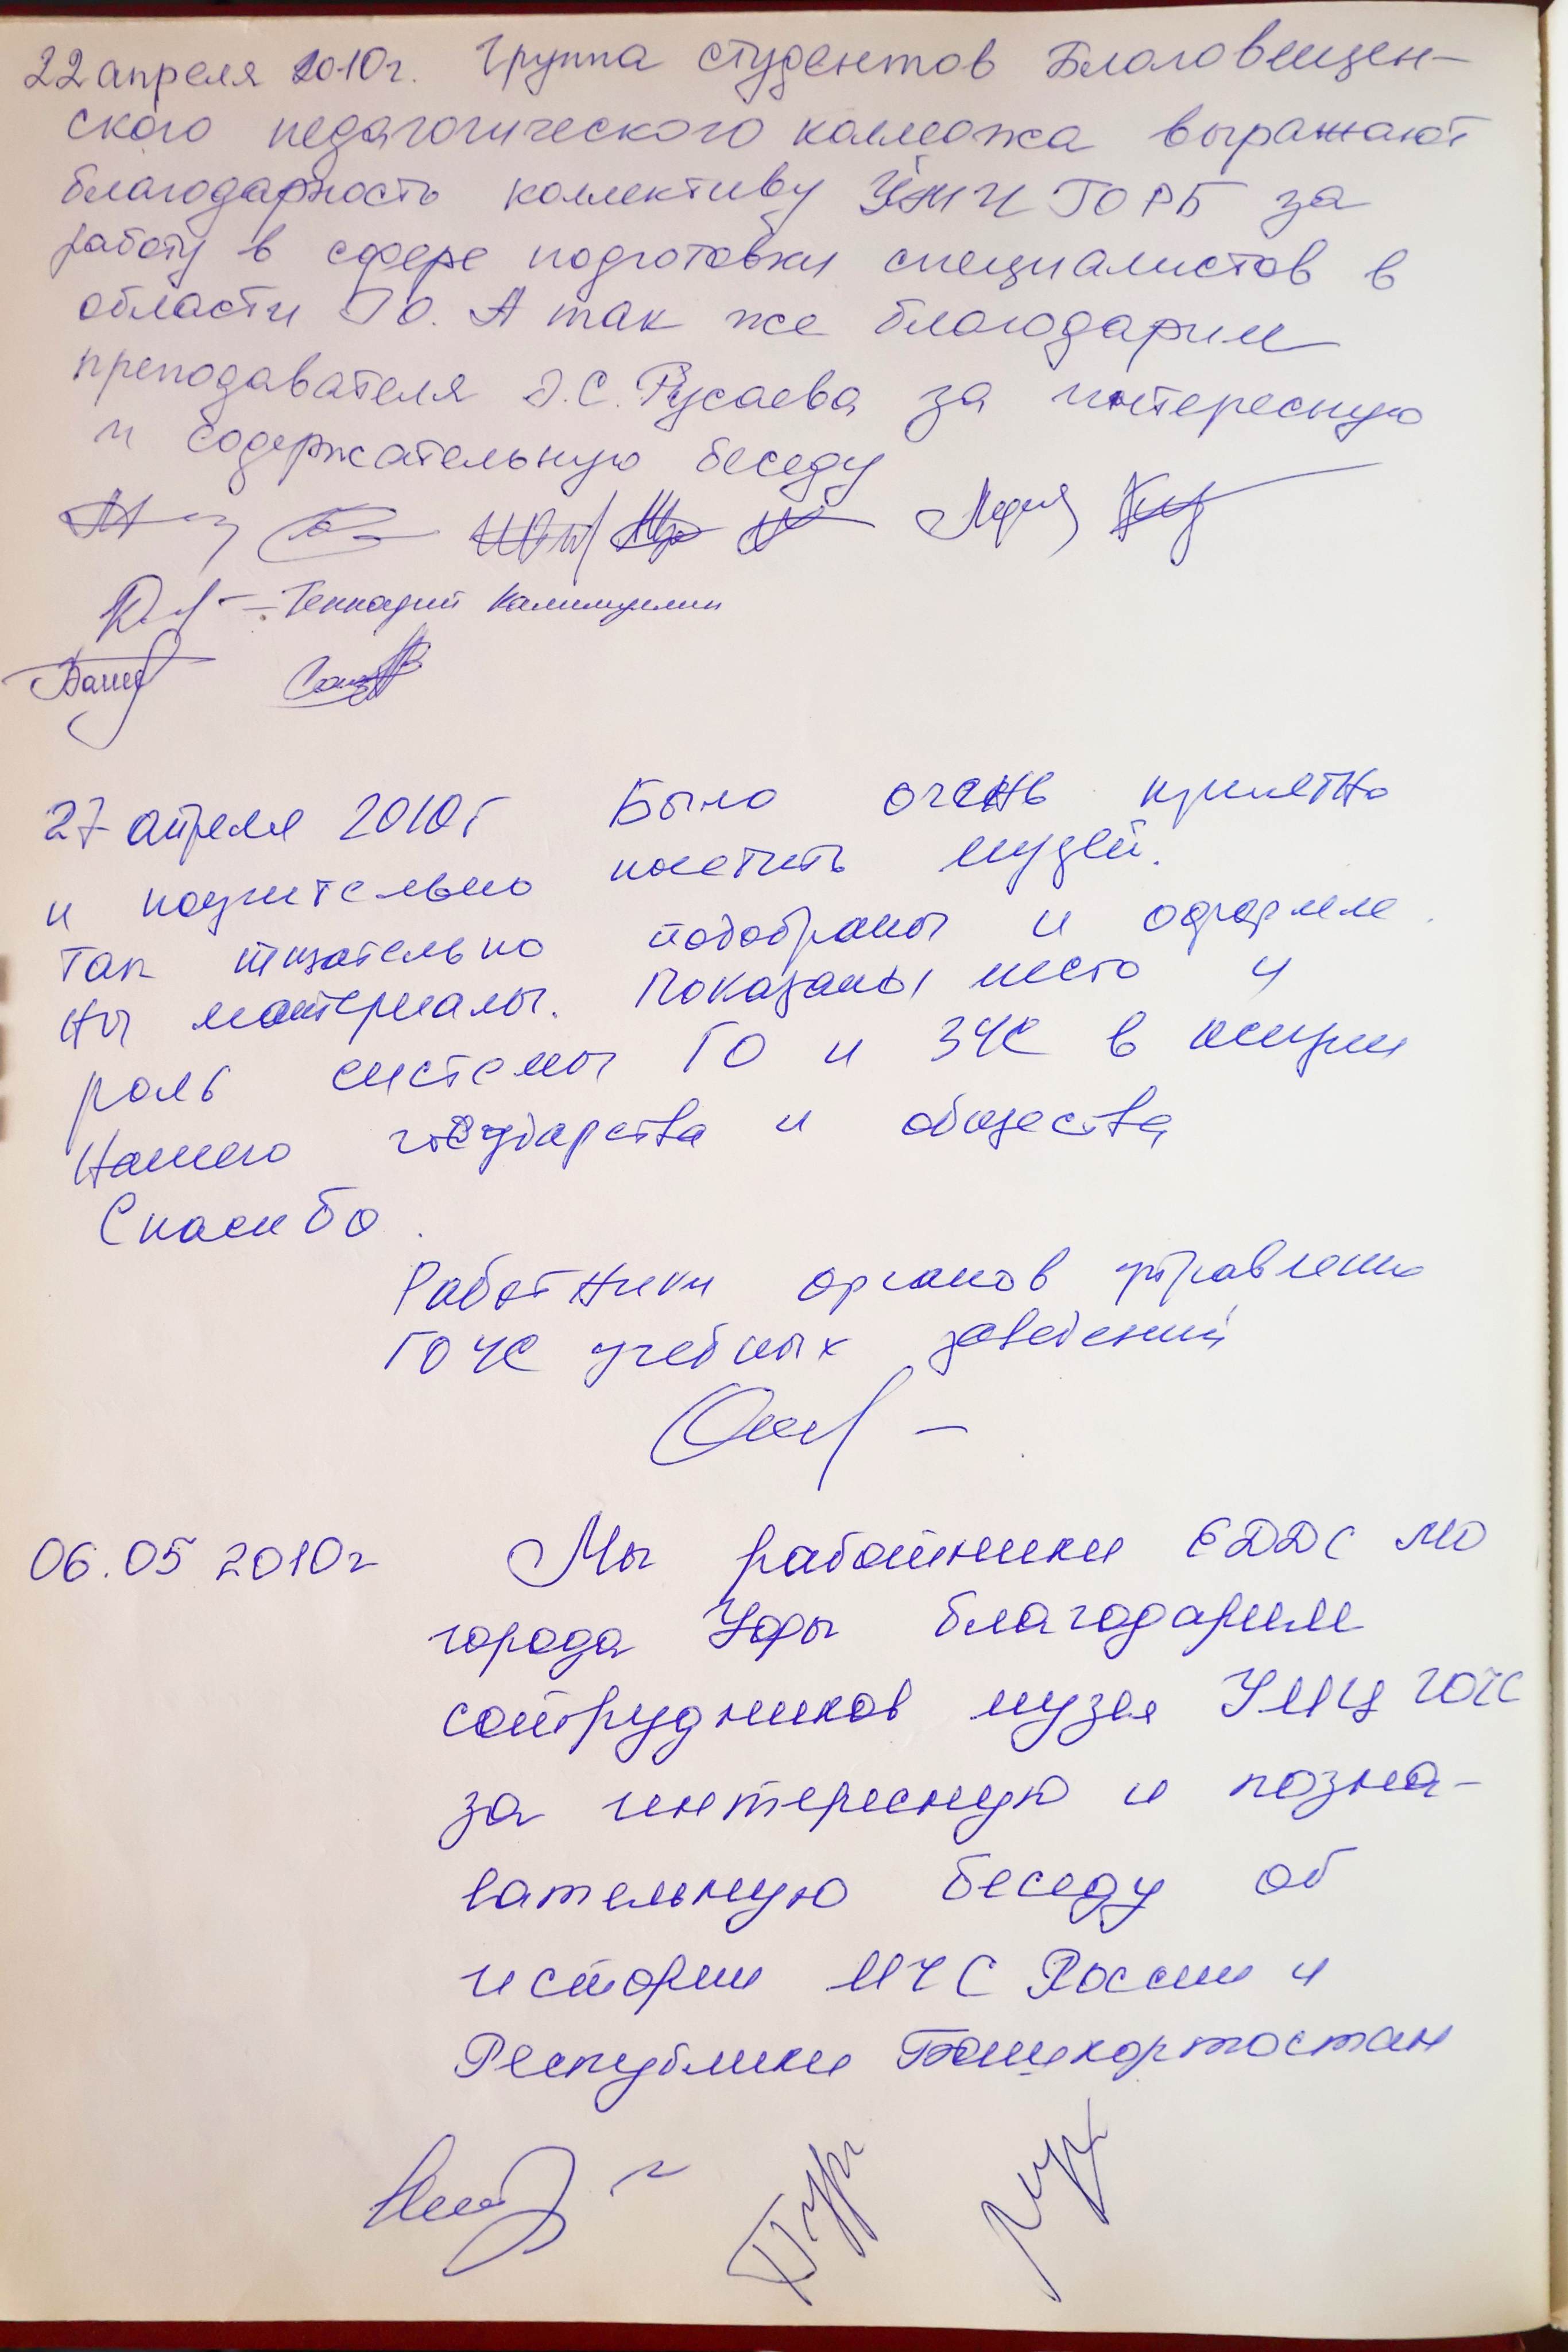 22 апреля 2010г. Группа студентов Благовещен-
ского педагогического колледжа выражают
благодарность коллективу УМЦ ГО РБ за
работу в сфере подготовки специалистов в
области ГО. А так же благодарим
преподавателя Э.С. Русаева за интересную
и содержательную беседу
Геннадий Калимуллин
27 апреля 2010г Было очень приятно
и поучительно посетить музей.
Так тщательно подобраны и оформле
ны материалы. Показаны место и
роль системы ГО и ЗЧС в жизни
нашего государства и общества
Спасибо.
Работники органов управления
ГОЧС учебных заведений
06.05 2010г Мы работники ЕДДС МО
города Уфы благодарим
сотрудников музея УМЦ ГОЧС
за интересную и позна-
вательную беседу об
истории МЧС России и
Республики Башкортостан